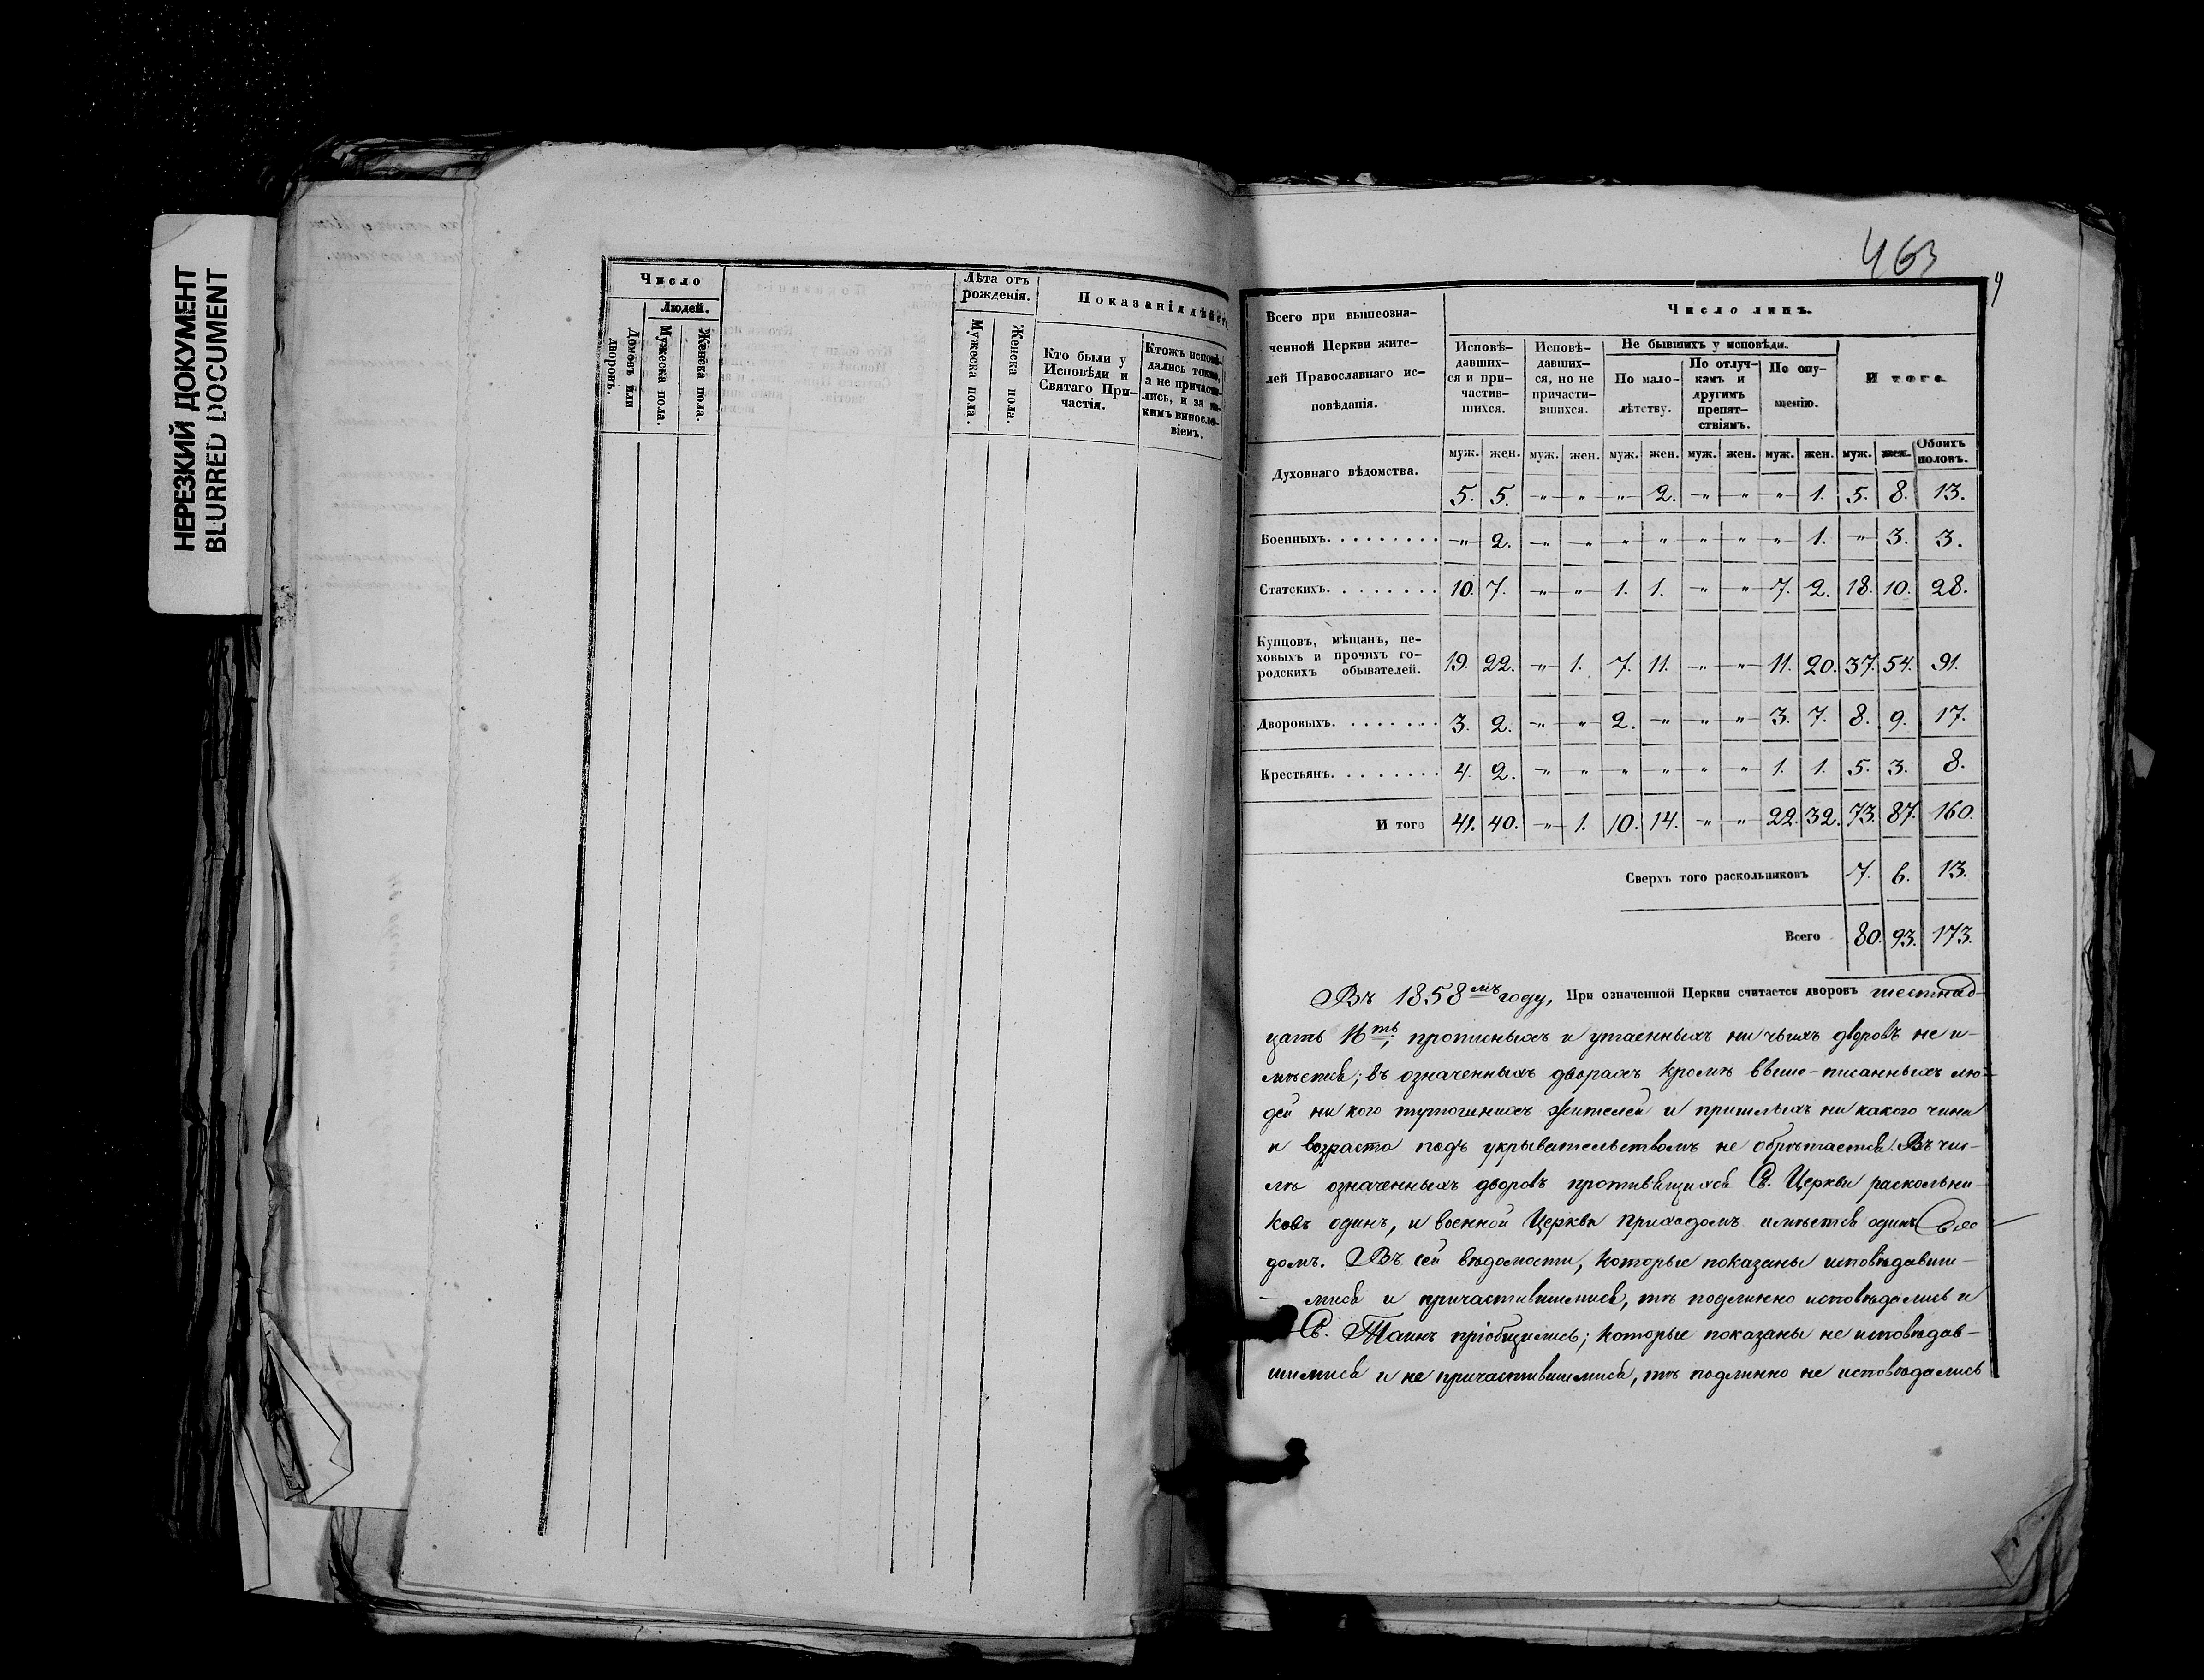 НЕРЕЗКИЙ ДОКУМЕНТ
BLURRED DOCUMENT
Число
Домовъ или дворовъ.
Людей.
Мужеска пола.
Женска пола.
Лѣта отъ рожденія.
Мужеска пола.
Женска пола.
Показанія дѣйст
Кто были у Исповѣди и Святаго Причастія.
Ктожъ исповѣдались токмо, а не причастились, и за какимъ винословіемъ.
463
9
Всего при вышеозна-
ченной Церкви жите-
лей Православнаго ис-
повѣданія.
Число лицъ.
Исповѣ-давших-ся и при-частив-шихся.
Исповѣ-давших-ся, но не причасти-вшихся.
Не бывшихъ у исповѣди.
По мало-лѣтству.
По отлуч-камъ и другимъ препят-ствіямъ.
По опу-щенію.
Итого
муж. жен. муж. жен. муж. жен. муж. жен. муж. жен. муж. жен. Обоихъ половъ.
Духовнаго вѣдомства. 5. 5. " " " 2. " " " 1. 5. 8. 13.
Военныхъ. " 2. " " " " " " " 1. " 3. 3.
Статскихъ. 10. 7. " " 1. 1. " " 7. 2. 18. 10. 28.
Купцовъ, мѣщанъ, це-
ховыхъ и прочихъ го-
родскихъ обывателей. 19. 22. " 1. 7. 11. " " 11. 20. 37. 54. 91.
Дворовыхъ. 3. 2. " " 2. " " " 3. 7. 8. 9. 17.
Крестьянъ. 4. 2. " " " " " " 1. 1. 5. 3. 8.
И того 41. 40. " 1. 10. 14. " " 22. 32. 73. 87. 160.
Сверхъ того раскольниковъ 7. 6. 13.
Всего 80. 93. 173.
Въ 1858мъ году, При означенной Церкви считается дворовъ шестнад-
цать 16ть; прописныхъ и утаенныхъ ни чьихъ дворовъ не и-
мѣется; въ означенныхъ дворахъ кромѣ выше-писанныхъ лю-
дей ни кого тутошнихъ жителей и пришлыхъ ни какого чина
и возраста подъ укрывательствомъ не обрѣтается. Въ чис-
лѣ означенныхъ дворовъ противящихся Св. Церкви расколни-
ковъ одинъ, и военной Церкви приходомъ имѣется одинъ
домъ. Въ сей вѣдомости, которые показаны исповѣдавши-
мися и причастившимися, тѣ подлинно исповѣдались и
Св. Таинъ пріобщились; которые показаны не исповѣдав-
шимися и не причастившимися, тѣ подлинно не исповѣдались